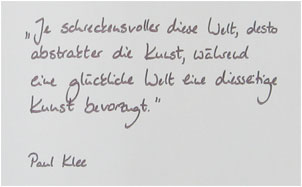 „Je schreckensvoller diese Welt, desto
abstrakter die Kunst, während
eine glückliche Welt eine diesseitige
Kunst bevorzugt."
Paul Klee